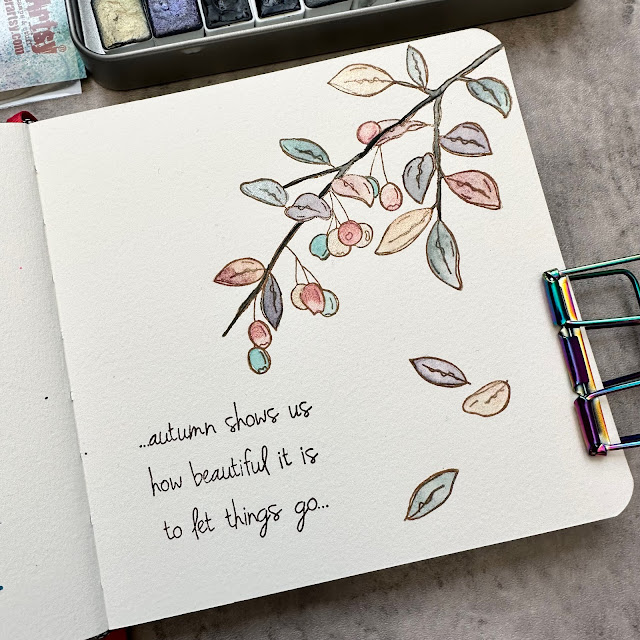 ...autumn shows us
how beautiful it is
to let things go...